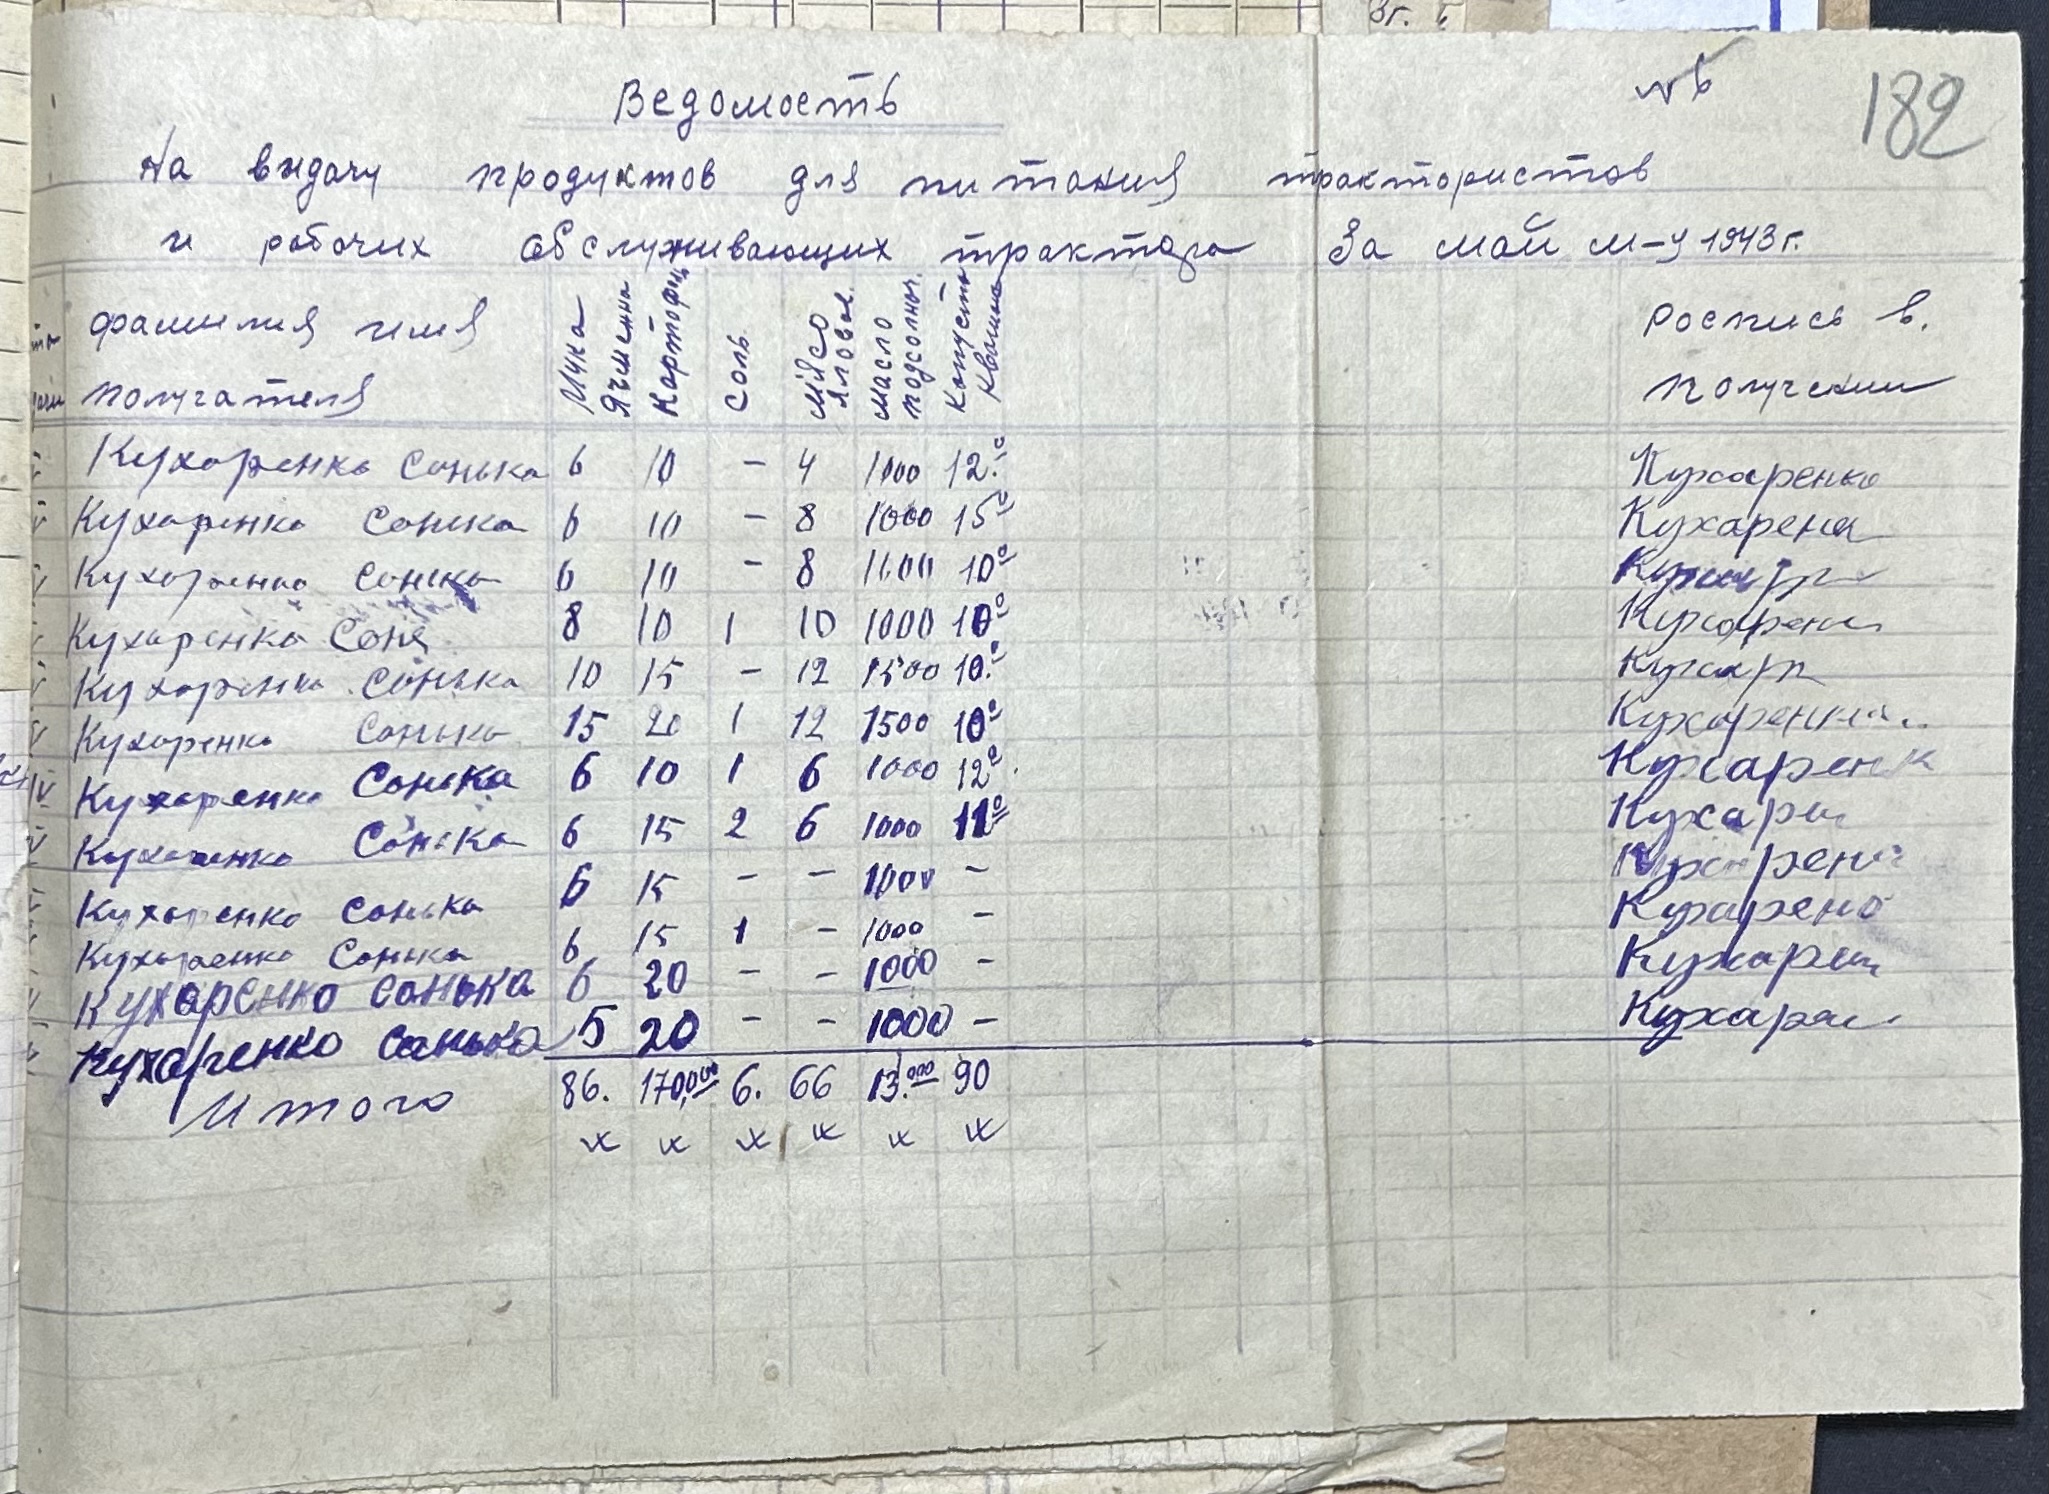 № 6
182
Ведомость
На выдачу продуктов для питания трактористов
и рабочих обслуживающих трактора За май м-ц 1943 г.
фамилия имя получателя Мука Ячменна Картофиц Соль. Мясо Яловое. Масло подсолнеч. Капуста Квашена Роспись в. получении
Кухаренко Сонька 6 10 – 4 1000 12.0
Кухаренко
Кухаренко Сонька 6 10 – 8 1000 15 0
Кухарена
Кухаренко Сонька 6 10 – 8 1000 10 0
Кухаренко Соня 8 10 1 10 1000 10 0
Кухарени
Кухаренко Сонька 10 15 – 12 1500 10.0
Кухарн
Кухаренко Сонька 15 20 1 12 1500 10 0
Кухаренка
Кухаренко Сонька 6 10 1 6 1000 12 0
Кухаренк
Кухаренко Сонька 6 15 2 6 1000 11 0
Кухарен
Кухаренко Сонька 6 15 – – 1000 –
Кухарени
Кухаренко Сонька 6 15 1 – 1000 –
Кухарено
Кухаренко Сонька 6 20 – – 1000 –
Кухарен
Кухаренко Санька 5 20 – – 1000 –
Кухарен
Итого 86. 170,000 6. 66 13.000 90